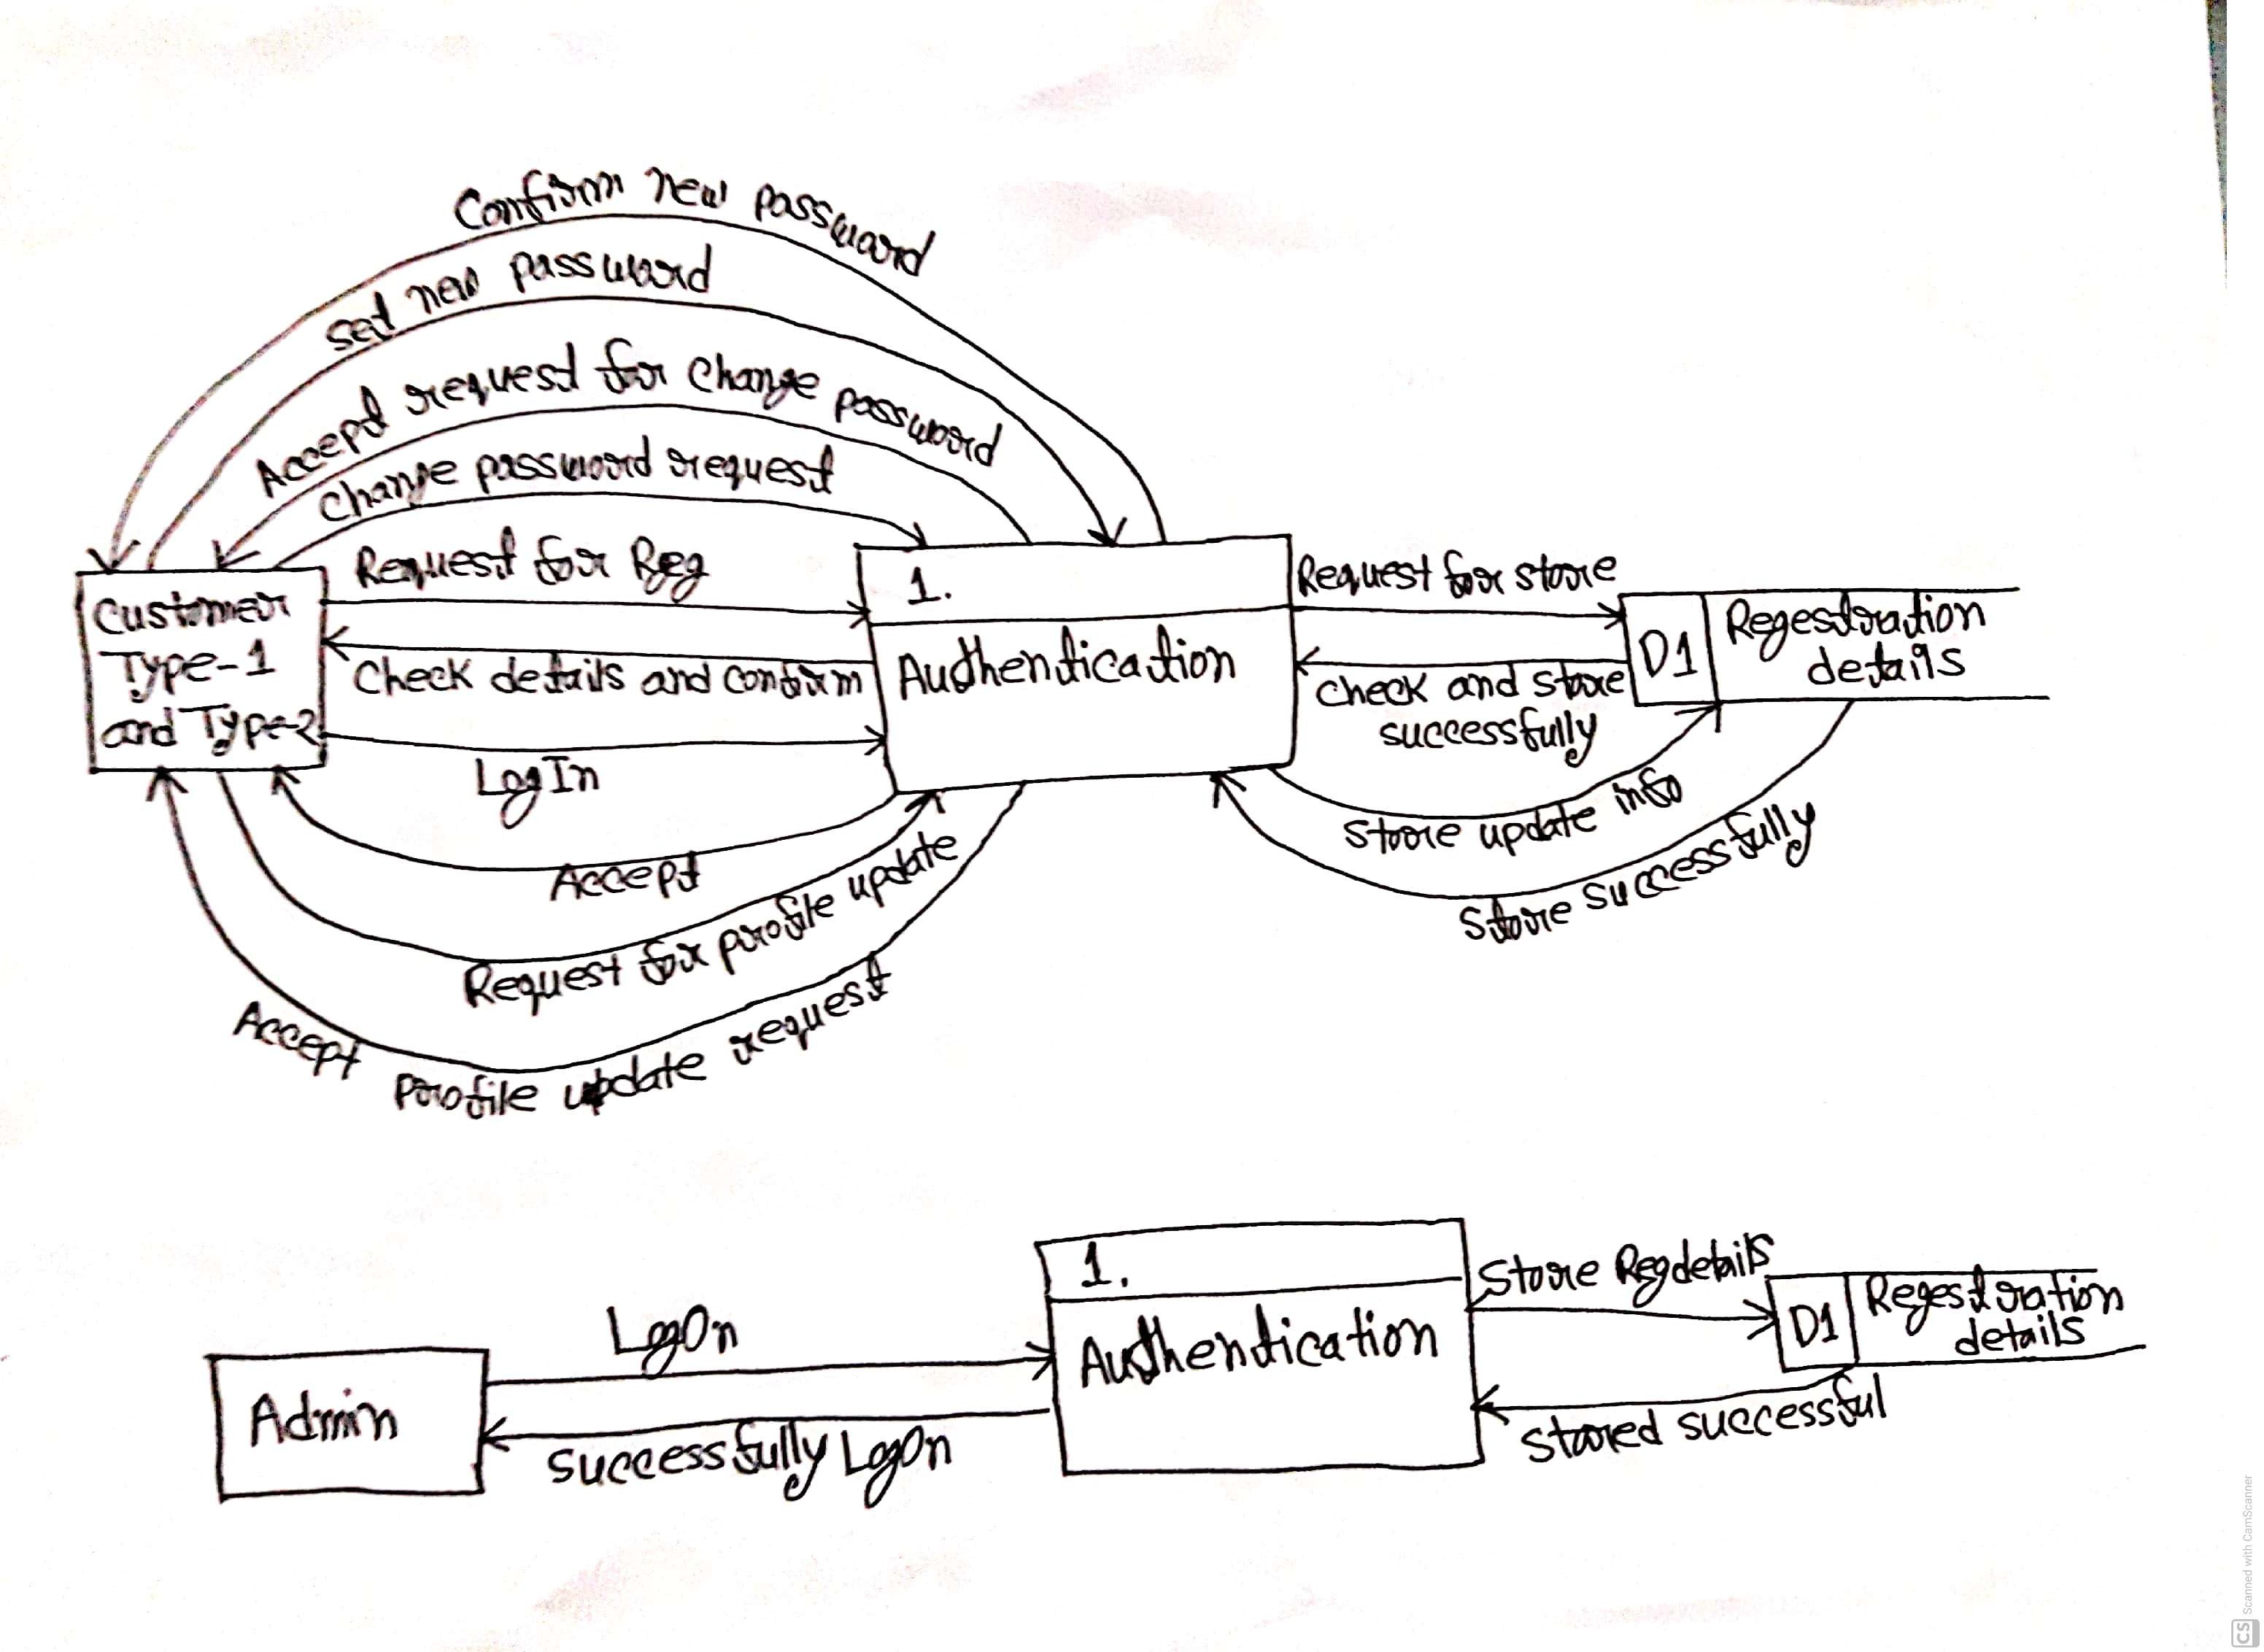 Confirm new password
Set new password
Accept request for change password
Change password request
Request for Reg
Customer
Type-1
and Type-2
Check details and confirm
LogIn
Accept
Request for profile update
Accept profile update request
1.
Authentication
Request for store
D1
Regestration
details
check and store
successfully
Store update info
Store successfully
1.
Authentication
Store Regdetails
D1
Regestration
details
Stored successful
LogOn
Admin
Successfully LogOn
CS Scanned with CamScanner